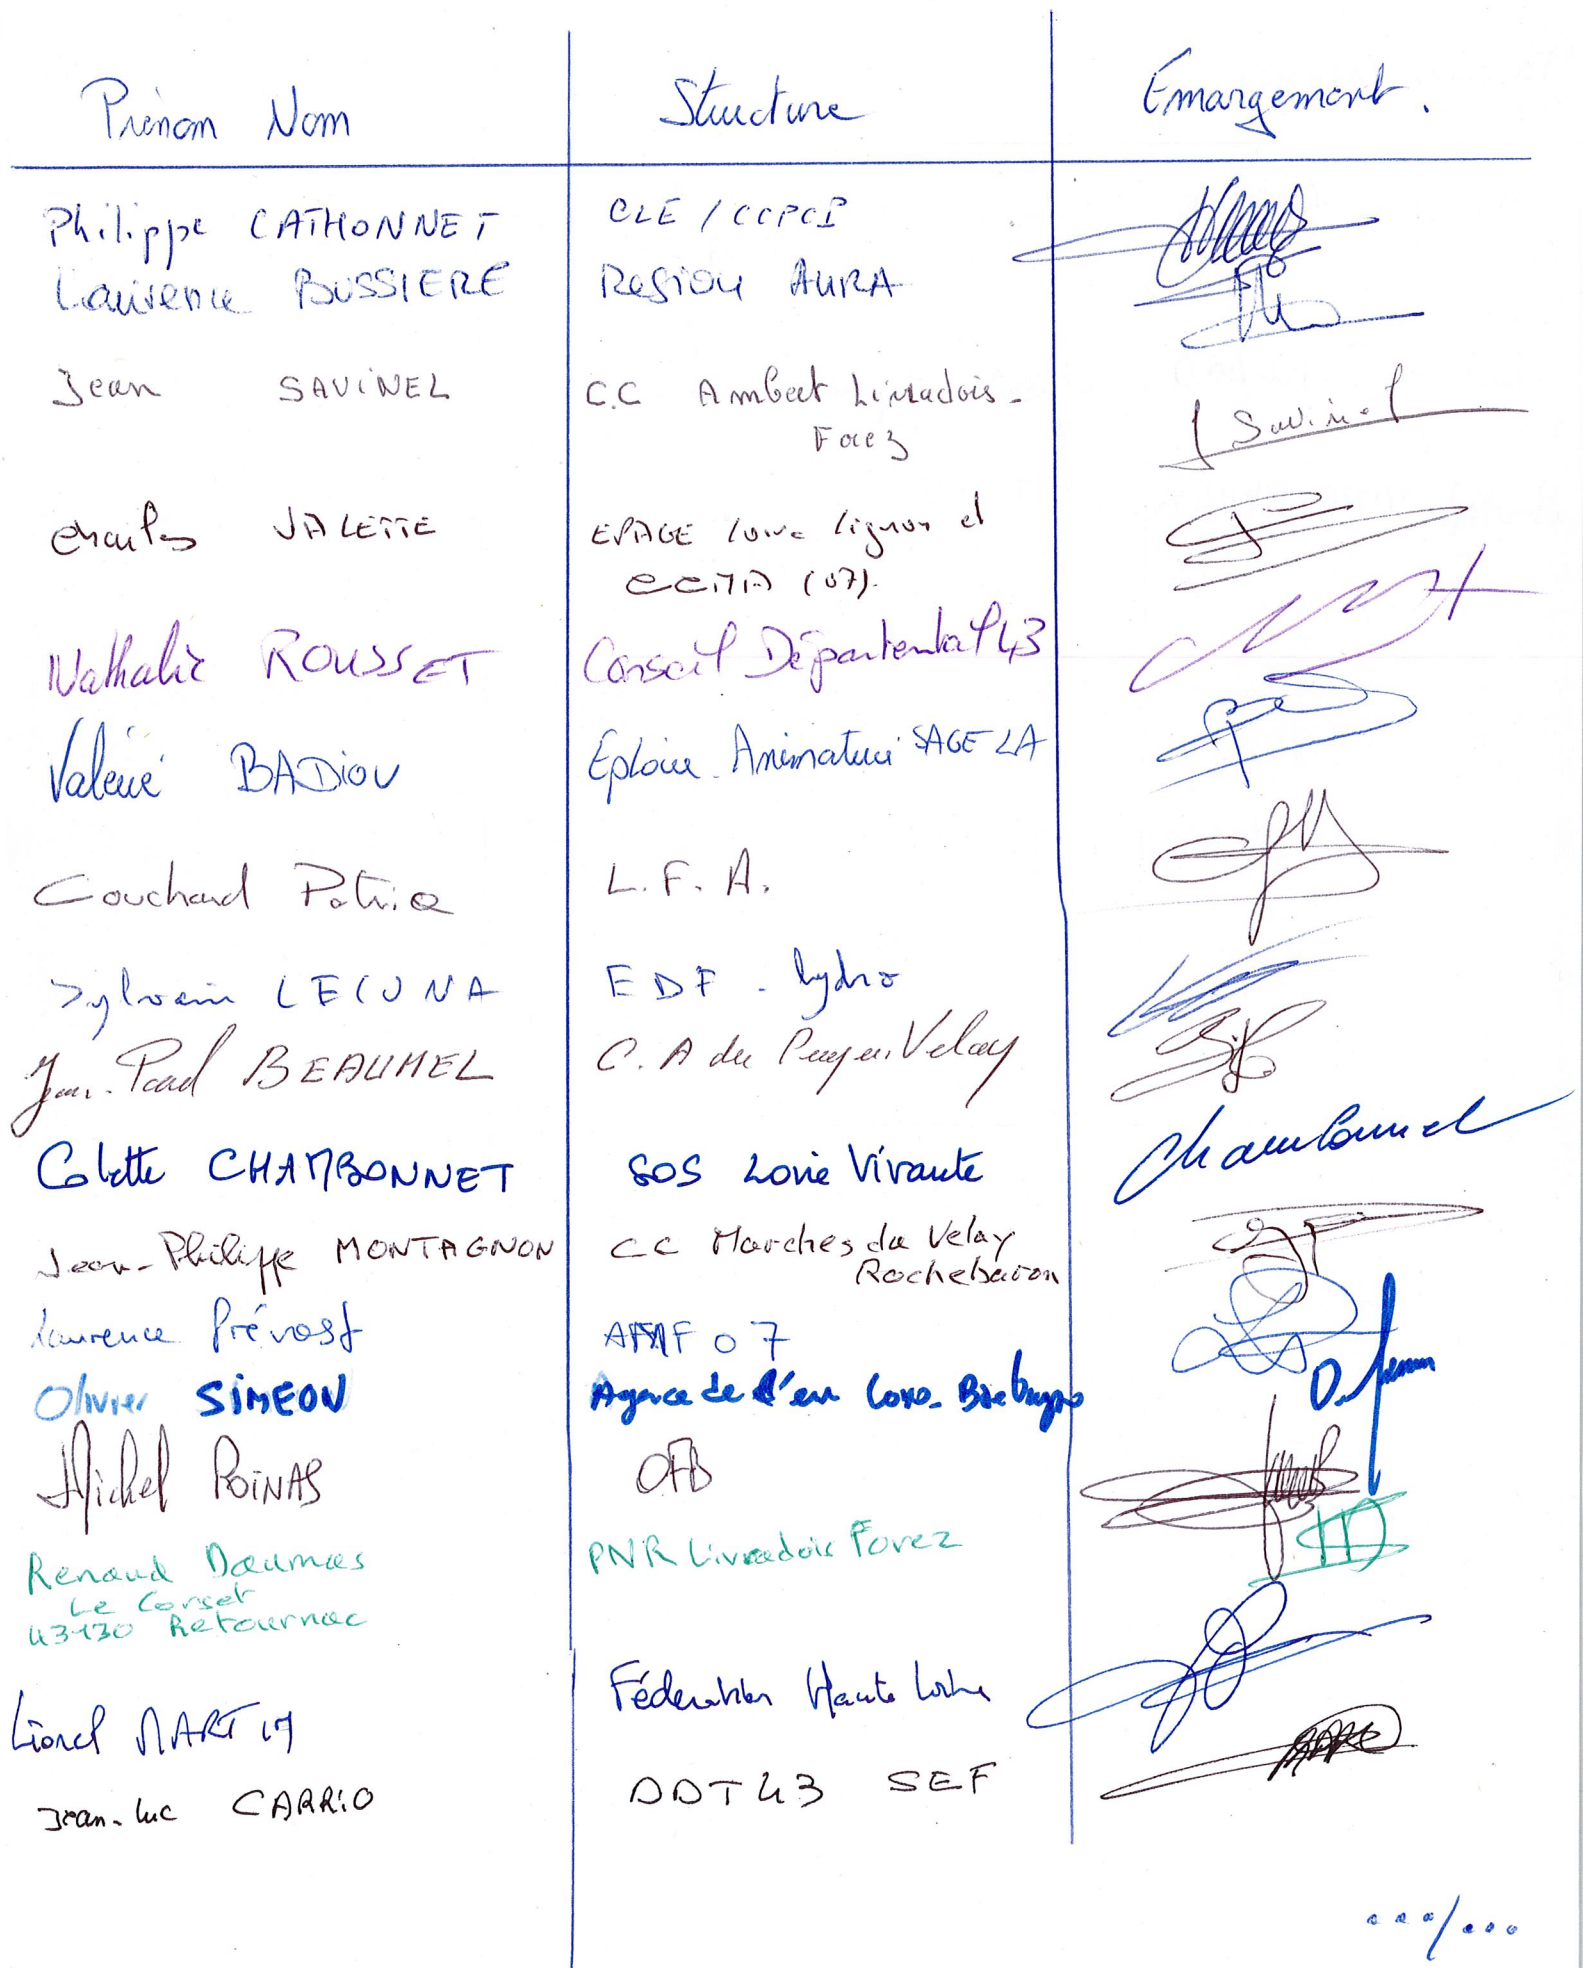 Prénom Nom Structure Émargement.
Philippe CATHONNET CLE / CCPCP
Laurence BUSSIERE Region AURA
Jean SAVINEL C.C Ambert Livradois-
Forez J Savinel
Charles VALETTE EPAGE Loire Lignon et
(07).
Nathalie ROUSSET Conseil Départemental 43
Valérie BADIOU Eploire Animatrice SAGE LA
Gouchard Patrice L.F.A.
Sylvain LECUNA EDF - hydro
Jean-Paul BEAUMEL C.A du Puy en Velay
Colette CHAMBONNET SOS Loire Vivante Chambonnet
Jean-Philippe MONTAGNON CC Marches du Velay
Rochebaron
Laurence Prévost 07
Olivier SIMEON Agence de l'eau Loire-Bretagne
Michel ROINAS OFB
Renaud Daumas PNR Livradois Forez
Le Corset
43130 Retournac
Lionel MARTIN Fédération Haute Loire
Jean-luc CARRIO DDT 43 SEF
.../...